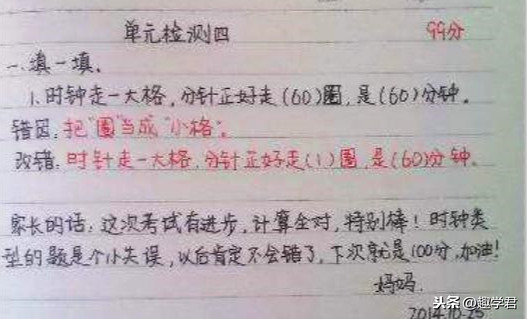 单元检测四 99分
一.填一填.
1.时钟走一大格,分针正好走(60)圈,是(60)分钟。
错因:把"圈"当成"小格"。
改错:时针走一大格,分针正好走(1)圈,是(60)分钟。
家长的话:这次考试有进步,计算全对,特别棒!时钟类
型的题是个小失误,以后肯定不会错了,下次就是100分,加油!
妈妈.
2014.10.25
头条@趣学君